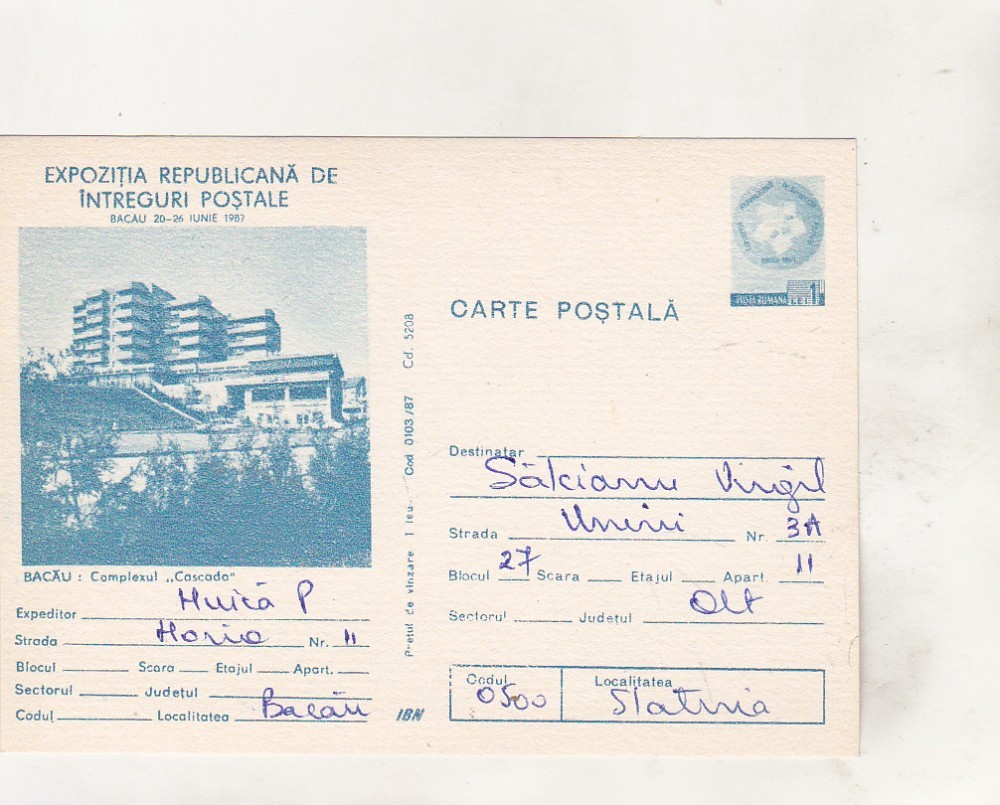 EXPOZIȚIA REPUBLICANĂ DE
ÎNTREGURI POȘTALE
BACĂU 20-26 IUNIE 1987
BACĂU : Complexul „Cascada"
Expeditor Huică P
Strada Horia Nr. 11
Blocul Scara Etajul Apart.
Sectorul Județul
Codul Localitatea Bacău
Prețul de vînzare 1 leu. Cod 0103/87 Cd. 5208
IBN
POȘTA ROMÂNĂ LEI 1
CARTE POȘTALĂ
Destinatar
Sălcianu Virgil
Strada Unirii Nr. 3A
Blocul 27 Scara Etajul Apart. 11
Sectorul Județul Olt
Codul Localitatea
0500 Slatina